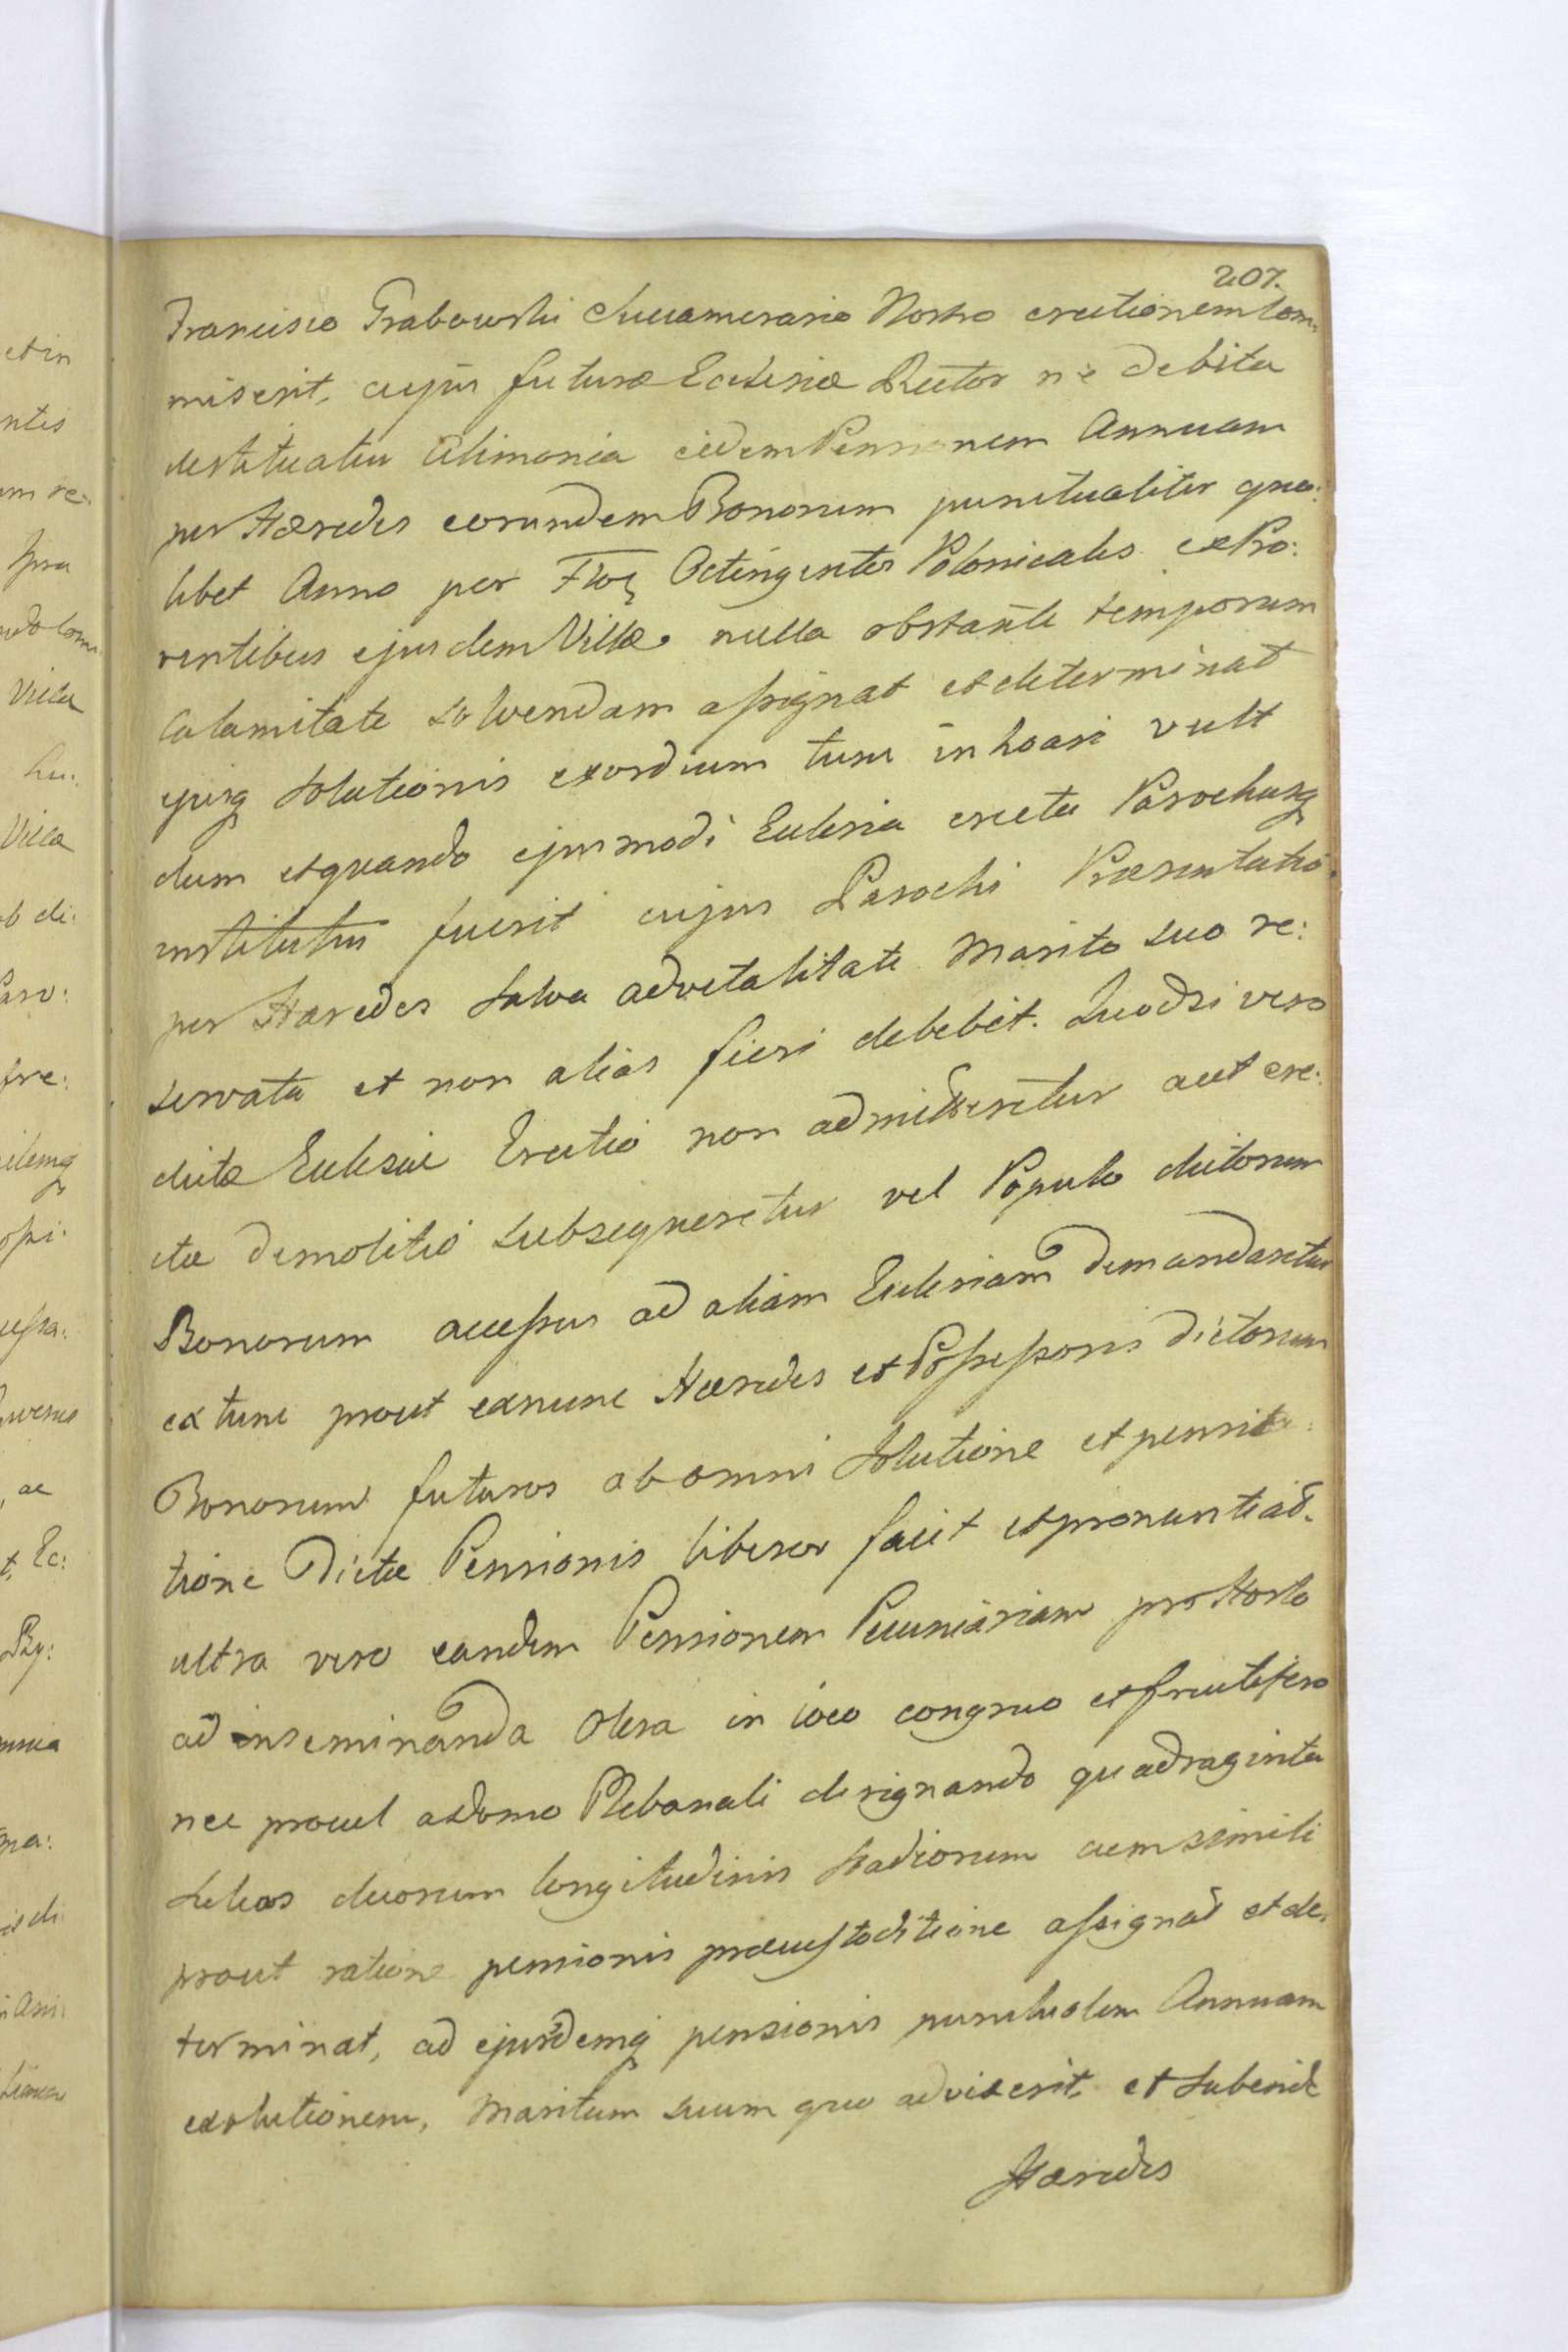 207.
Francisco Grabowski Succamerario Nostro erectionem com:
miserit, cujus futuræ Ecclesiæ Rector ne debita
destituatur Alimonia eidem Pensionem Annuam
per Hæredes eorundem Bonorum punctualiter quo:
libet Anno per Flor Octingentos Polonicales ex Pro:
ventibus ejusdem Villæ nulla obstante temporum
Calamitate solvendam assignat et determinat
ejusq solutionis exordium tunc inhoari vult
dum et quando ejusmodi Ecclesia erecta Parochusq
institutus fuerit cujus Parochi Præsentatio
per Hæredes salva advitalitate Marito suo re:
servata et non alias fieri debebit. Quodsi vero
dictæ Ecclesiæ Erectio non admitteretur aut ere:
ctæ demolitio subsequeretur vel Populo dictorum
Bonorum accessus ad aliam Ecclesiam demandaretur
ex tunc prout ex nunc Hæredes et Possessores dictorum
Bonorum futuros ab omni solutione et pensita:
tione Dictæ Pensionis liberos facit et pronuntiat.
ultra vero eandem Pensionem Pecuniariam pro Horto
ad inseminanda Olera in loco congruo et fructifero
nec procul a domo Plebanali designando quadraginta
sulcos duorum longitudinis stadiorum cum simili
prout ratione pensionis præcustoditione assignat et de:
terminat, ad ejusdemq pensionis punctualem Annuam
exolutionem, Maritum suum quo advixerit et subinde
Hæredes

et in
ntis
um re:
Villa
Villa
b di:
fre:
ilemq
opi:
ac
t, Ec: